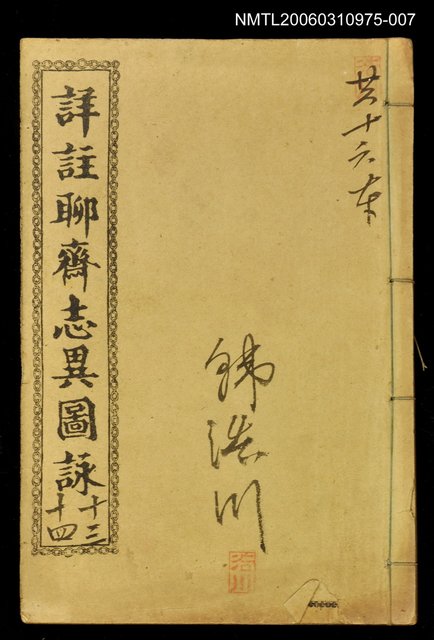 NMTL20060310975-007
共十六本
詳註聊齋志異圖詠
十三
十四
浩川